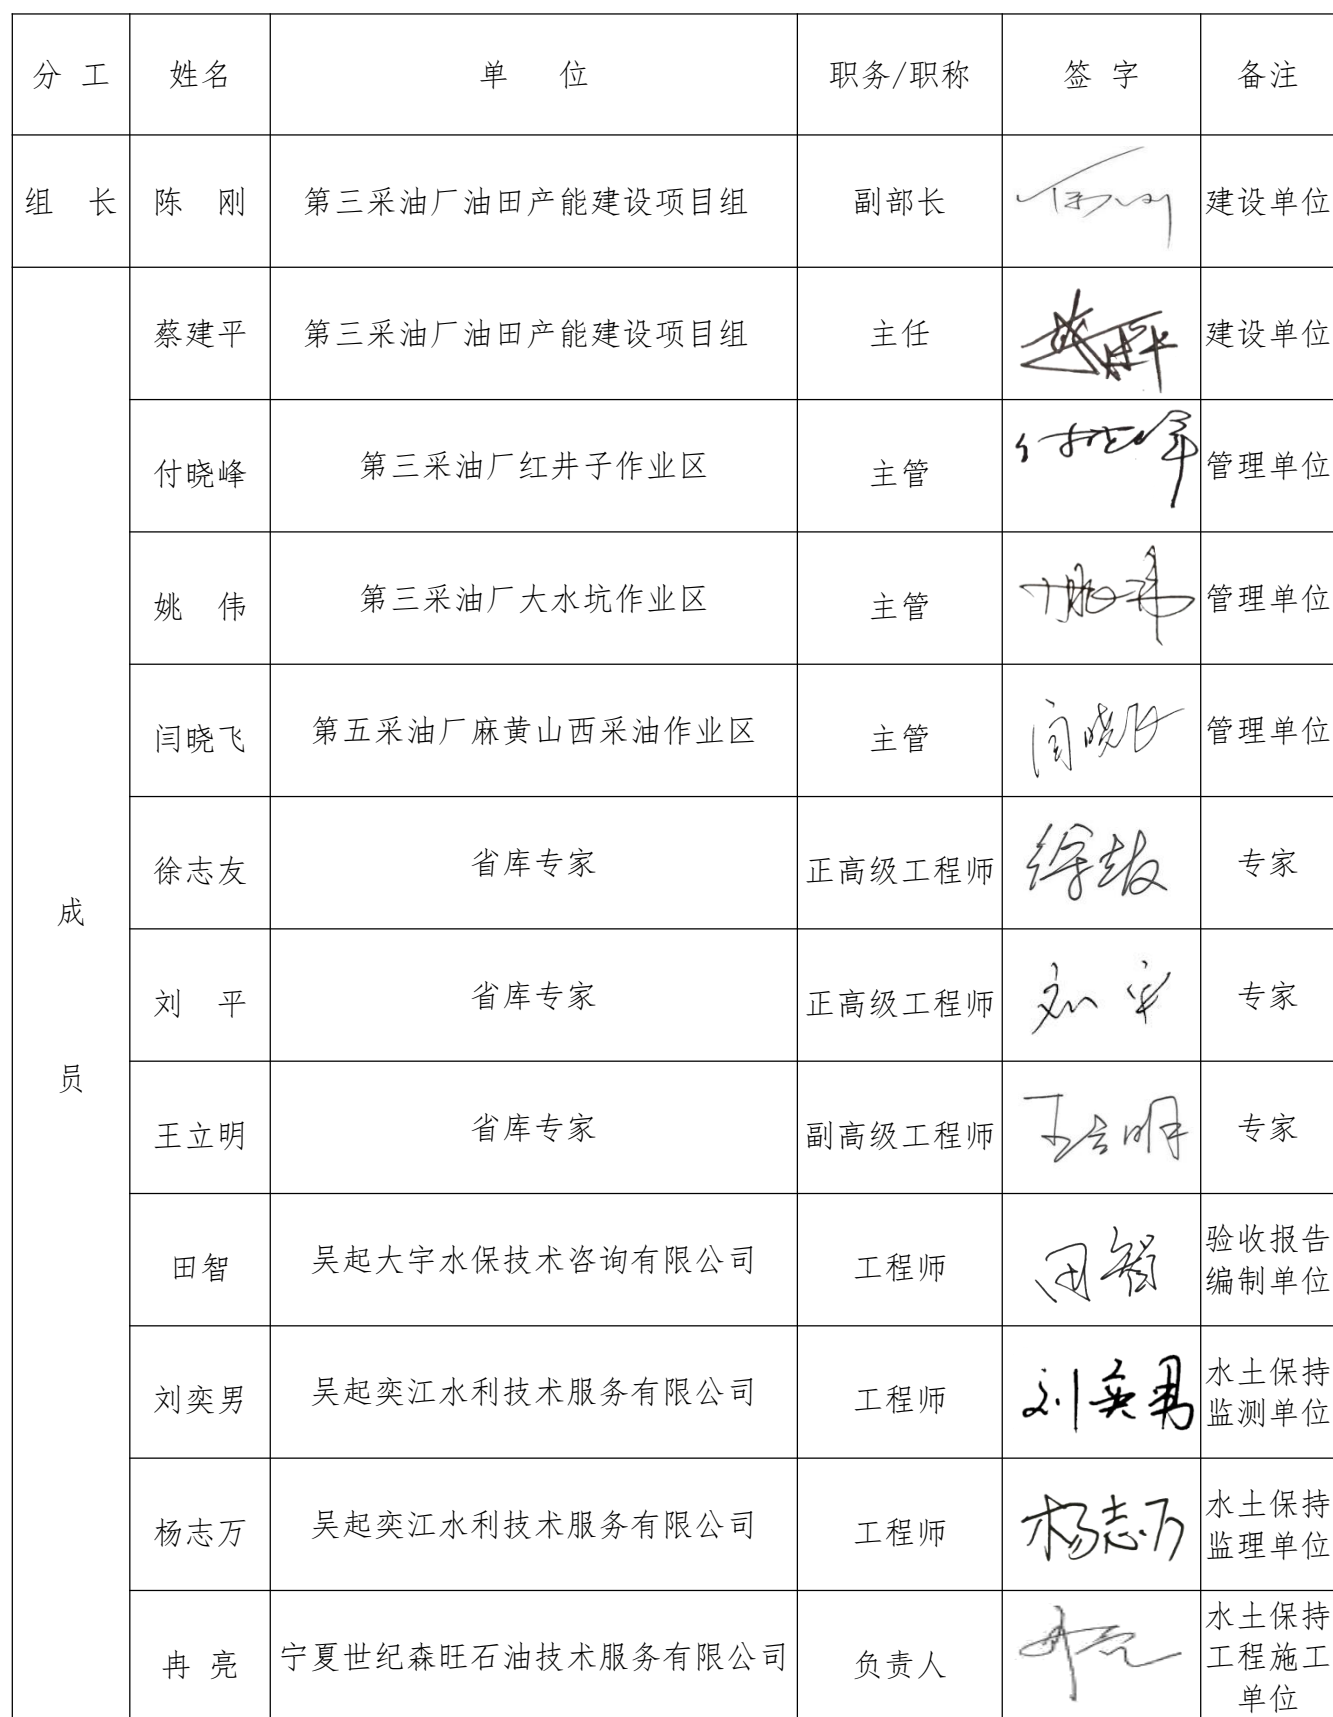 分 工 姓名 单 位 职务/职称 签 字 备注
组 长 陈 刚 第三采油厂油田产能建设项目组 副部长 陈刚 建设单位
成
员
蔡建平 第三采油厂油田产能建设项目组 主任 蔡建平 建设单位
付晓峰 第三采油厂红井子作业区 主管 付晓峰 管理单位
姚 伟 第三采油厂大水坑作业区 主管 姚伟 管理单位
闫晓飞 第五采油厂麻黄山西采油作业区 主管 闫晓飞 管理单位
徐志友 省库专家 正高级工程师 徐志友 专家
刘 平 省库专家 正高级工程师 刘平 专家
王立明 省库专家 副高级工程师 王立明 专家
田智 吴起大宇水保技术咨询有限公司 工程师 田智 验收报告
编制单位
刘奕男 吴起奕江水利技术服务有限公司 工程师 刘奕男 水土保持
监测单位
杨志万 吴起奕江水利技术服务有限公司 工程师 杨志万 水土保持
监理单位
冉 亮 宁夏世纪森旺石油技术服务有限公司 负责人 冉亮 水土保持
工程施工
单位